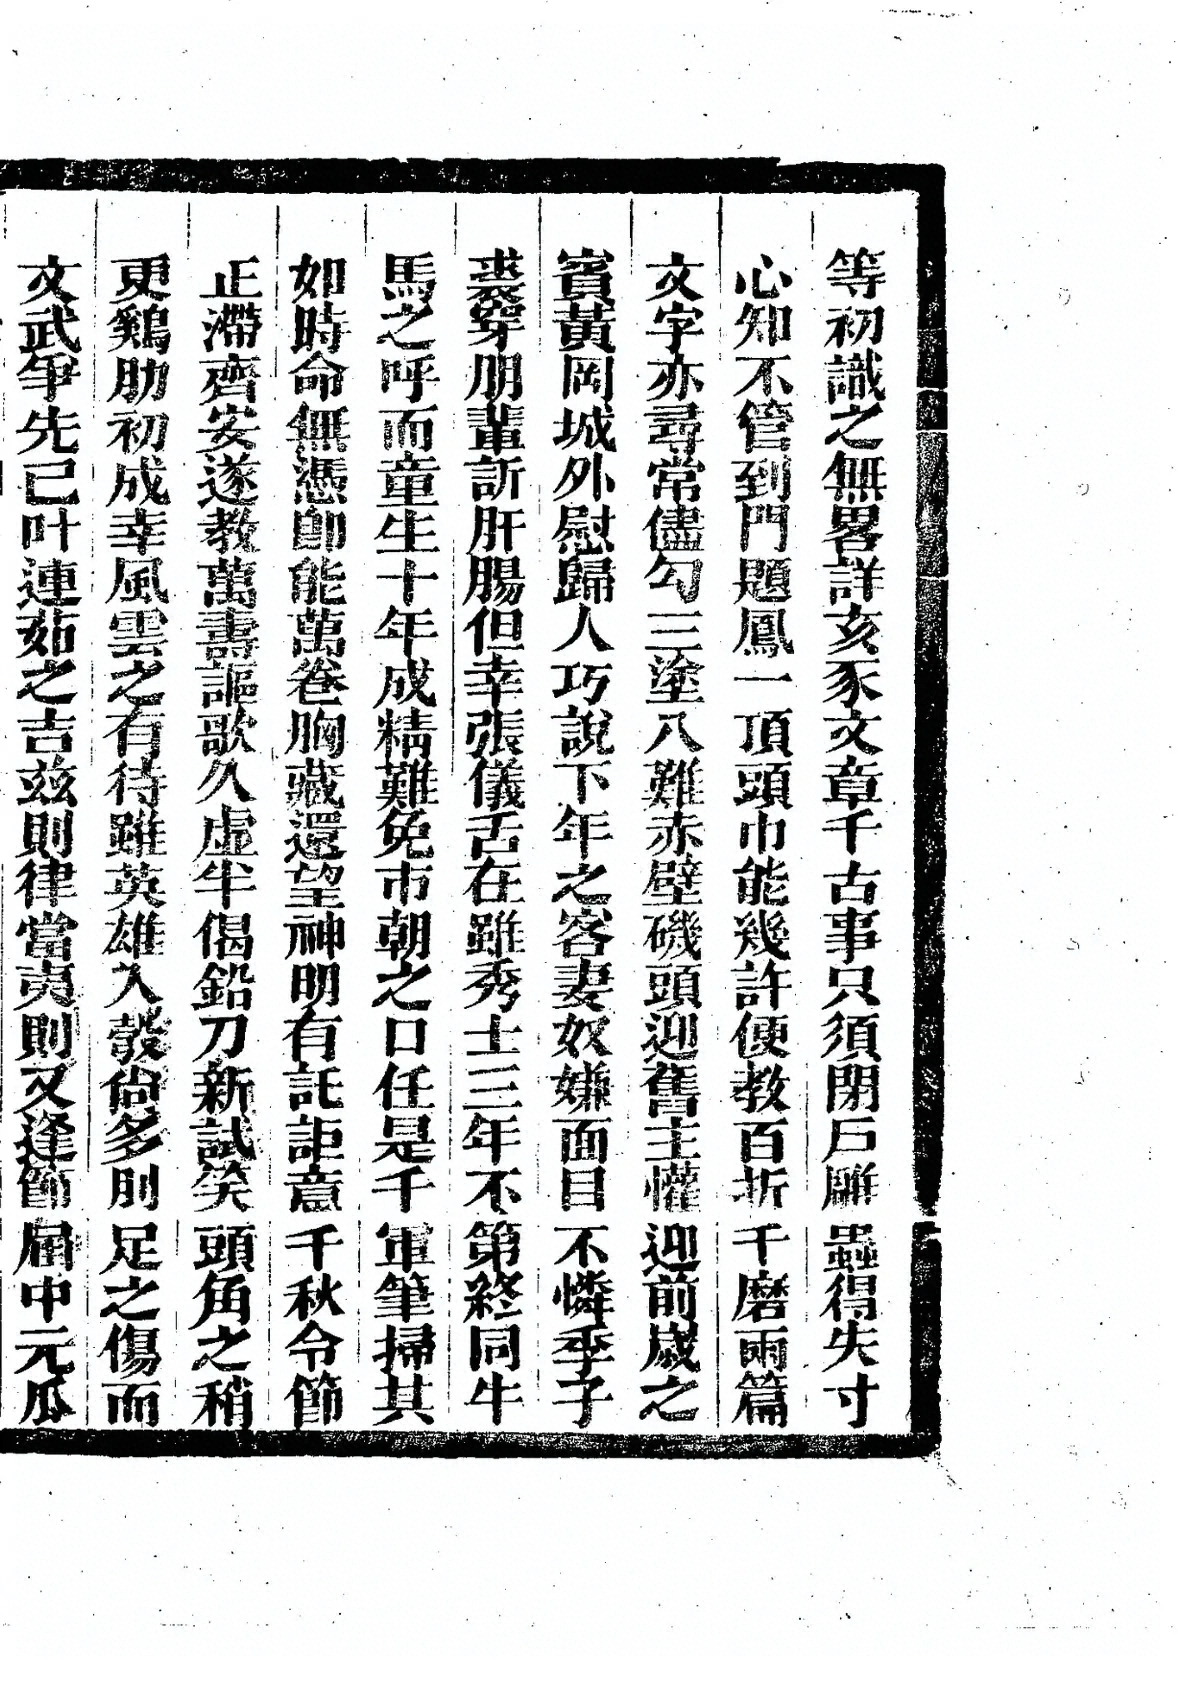 等初識之無畧詳亥豕文章千古事只須閉戸雕蟲得失寸
心知不管到門題鳳一頂頭巾能幾許便教百折千磨兩篇
文字亦尋常儘勾三塗八難赤壁磯頭迎舊主懽迎前歲之
賓黃岡城外慰歸人巧說下年之客妻奴嫌面目不憐季子
裘穿朋輩訢肝腸但幸張儀舌在雖秀士三年不第終同牛
馬之呼而童生十年成精難免市朝之口任是千軍筆掃其
如時命無憑卽能萬卷胸藏還望神明有託詎意千秋令節
正滯齊安遂教萬壽謳歌久虛半偈鉛刀新試笑頭角之稍
更鷄肋初成幸風雲之有待雖英雄入彀尙多刖足之傷而
文武爭先已叶連茹之吉兹則律當夷則又逢節屆中元瓜